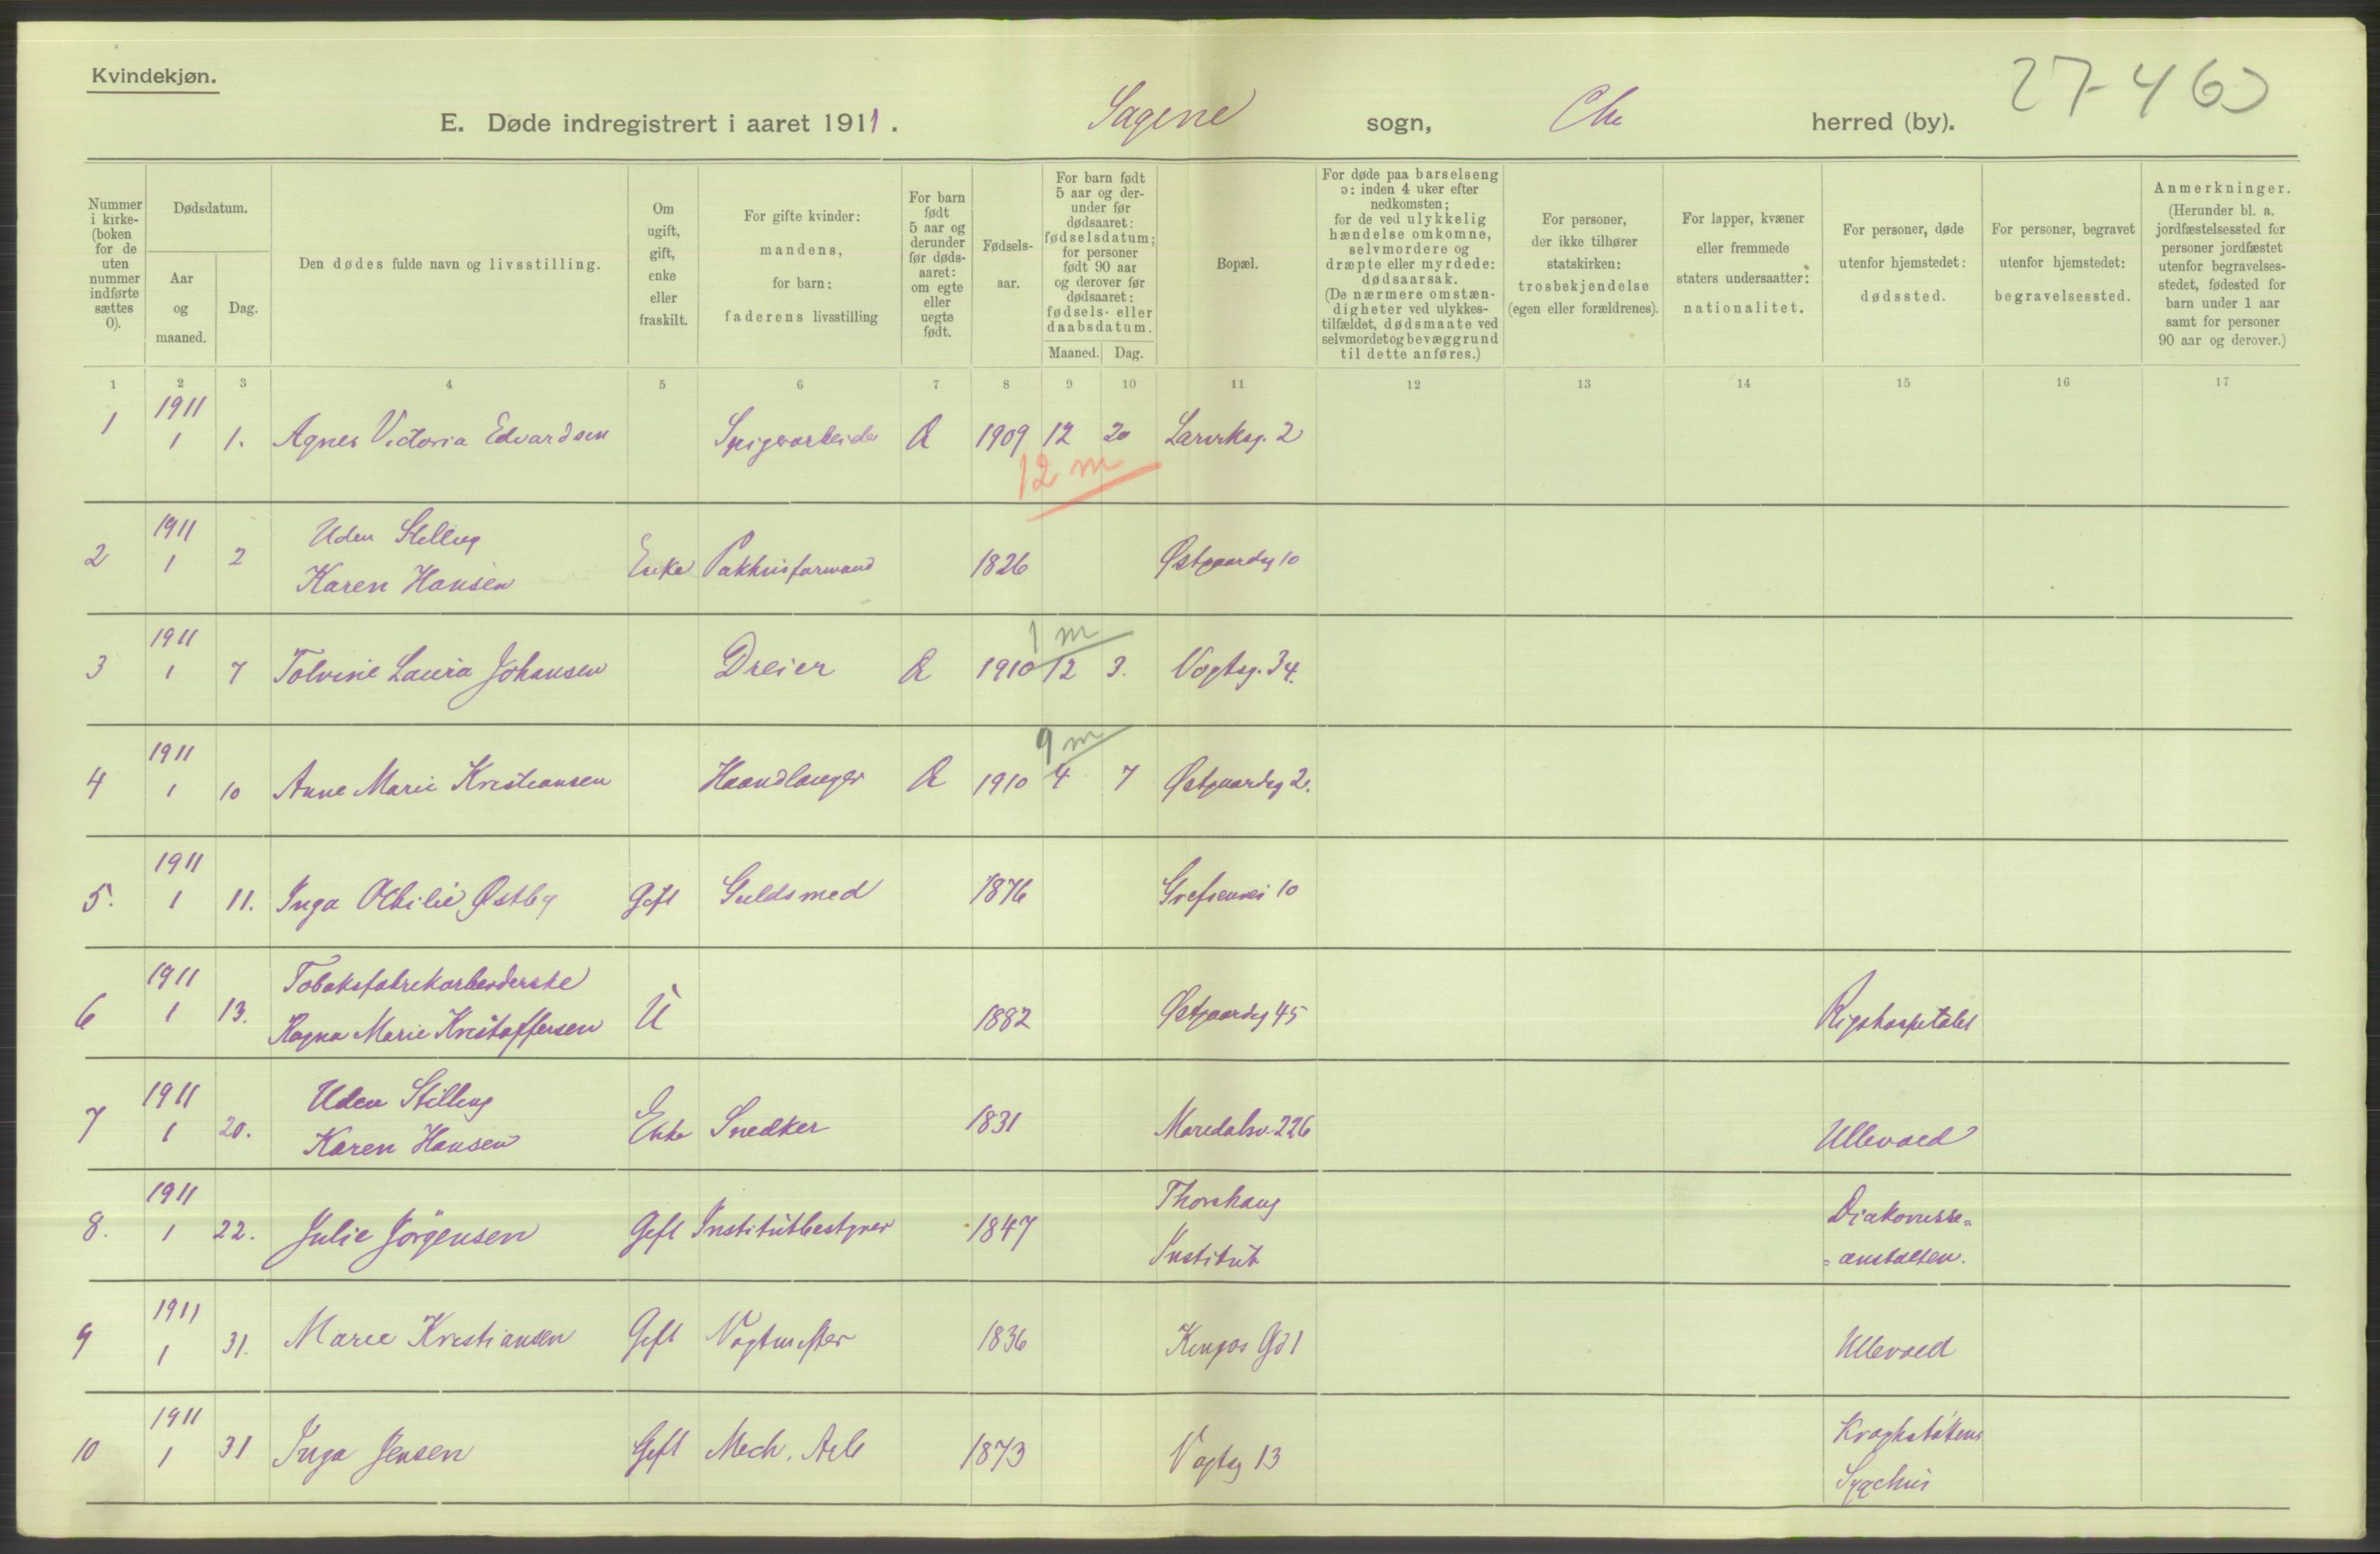 Kvindekjøn.
27-463
E. Døde indregistrert i aaret 1911. Sagene sogn, Chr herred (by).
Nummer i kirke-(boken for de uten nummer indførte sættes 0).
Dødsdatum.
Aar og maaned.
Dag.
Den dødes fulde navn og livsstilling.
Om ugift, gift, enke eller fraskilt.
For gifte kvinder: mandens, for barn: faderens livsstilling
For barn født 5 aar og derunder før døds-aaret: om egte eller uegte født.
Fødsels-aar.
For barn født 5 aar og der-under før dødsaaret: fødselsdatum; for personer født 90 aar og derover før dødsaaret: fødsels- eller daabsdatum.
Maaned. Dag.
Bopæl.
For døde paa barselseng ɔ: inden 4 uker efter nedkomsten; for de ved ulykkelig hændelse omkomne, selvmordere og dræpte eller myrdede: dødsaarsak. (De nærmere omstæn-digheter ved ulykkes-tilfældet, dødsmaate ved selvmordet og bevæggrund til dette anføres.)
For personer, der ikke tilhører statskirken: trosbekjendelse (egen eller forældrenes).
For lapper, kvæner eller fremmede staters undersaatter: nationalitet.
For personer, døde utenfor hjemstedet: dødssted.
For personer, begravet utenfor hjemstedet: begravelsessted.
Anmerkninger. (Herunder bl. a. jordfæstelsessted for personer jordfæstet utenfor begravelses-stedet, fødested for barn under 1 aar samt for personer 90 aar og derover.)
1 2 3 4 5 6 7 8 9 10 11 12 13 14 15 16 17
1 1911 1 1. Agnes Victoria Edvardsen Spigerarbeider Æ 1909 12 20 Larviksg. 2
12 m
2 1911 1 2 Uden Stilling
Karen Hansen Enke Pakhusformand 1826 Østgaardsg 10
1 m
3 1911 1 7 Tolvine Laura Johansen Dreier Æ 1910 12 3. Vogtsg. 34.
9 m
4 1911 1 10 Anne Marie Kristiansen Haandlanger Æ 1910 4 7 Østgaardsg 2.
5. 1911 1 11. Inga Othilie Østby Gift Guldsmed 1876 Grefsenvei 10
6 1911 1 13. Tobaksfabrikarbeiderske
Ragna Marie Kristoffersen U 1882 Østgaardsg 45 Rigshospitalet
7 1911 1 20. Uden Stilling
Karen Hansen Enke Snedker 1831 Maridalsv. 226 Ullevaal
8. 1911 1 22. Julie Jörgensen Gift Institutbestyrer 1847 Thorshaug Institut Diakonisse=
=anstalten.
9 1911 1 31. Marie Kristiansen Gift Vogtmester 1836 Ullevaal
10 1911 1 31 Inga Jensen Gift Mech. Arb 1873 Vogtsg 13 Sygehus